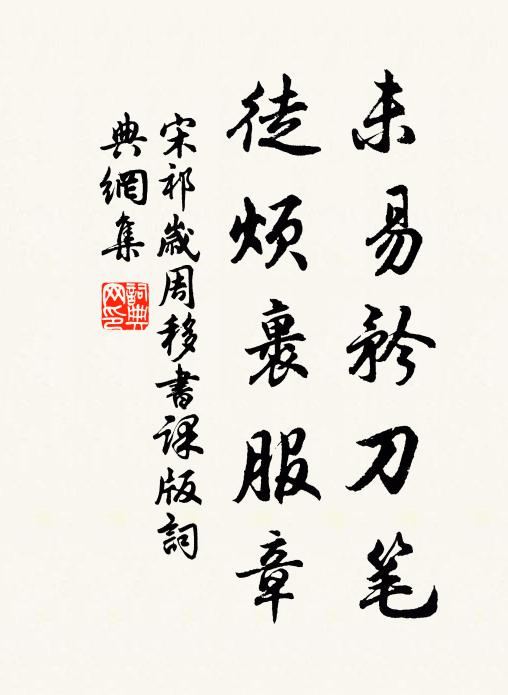 未易矜刀笔
徒烦裹服章
宋祁歲周移書课版詞
典網集
詞典网印